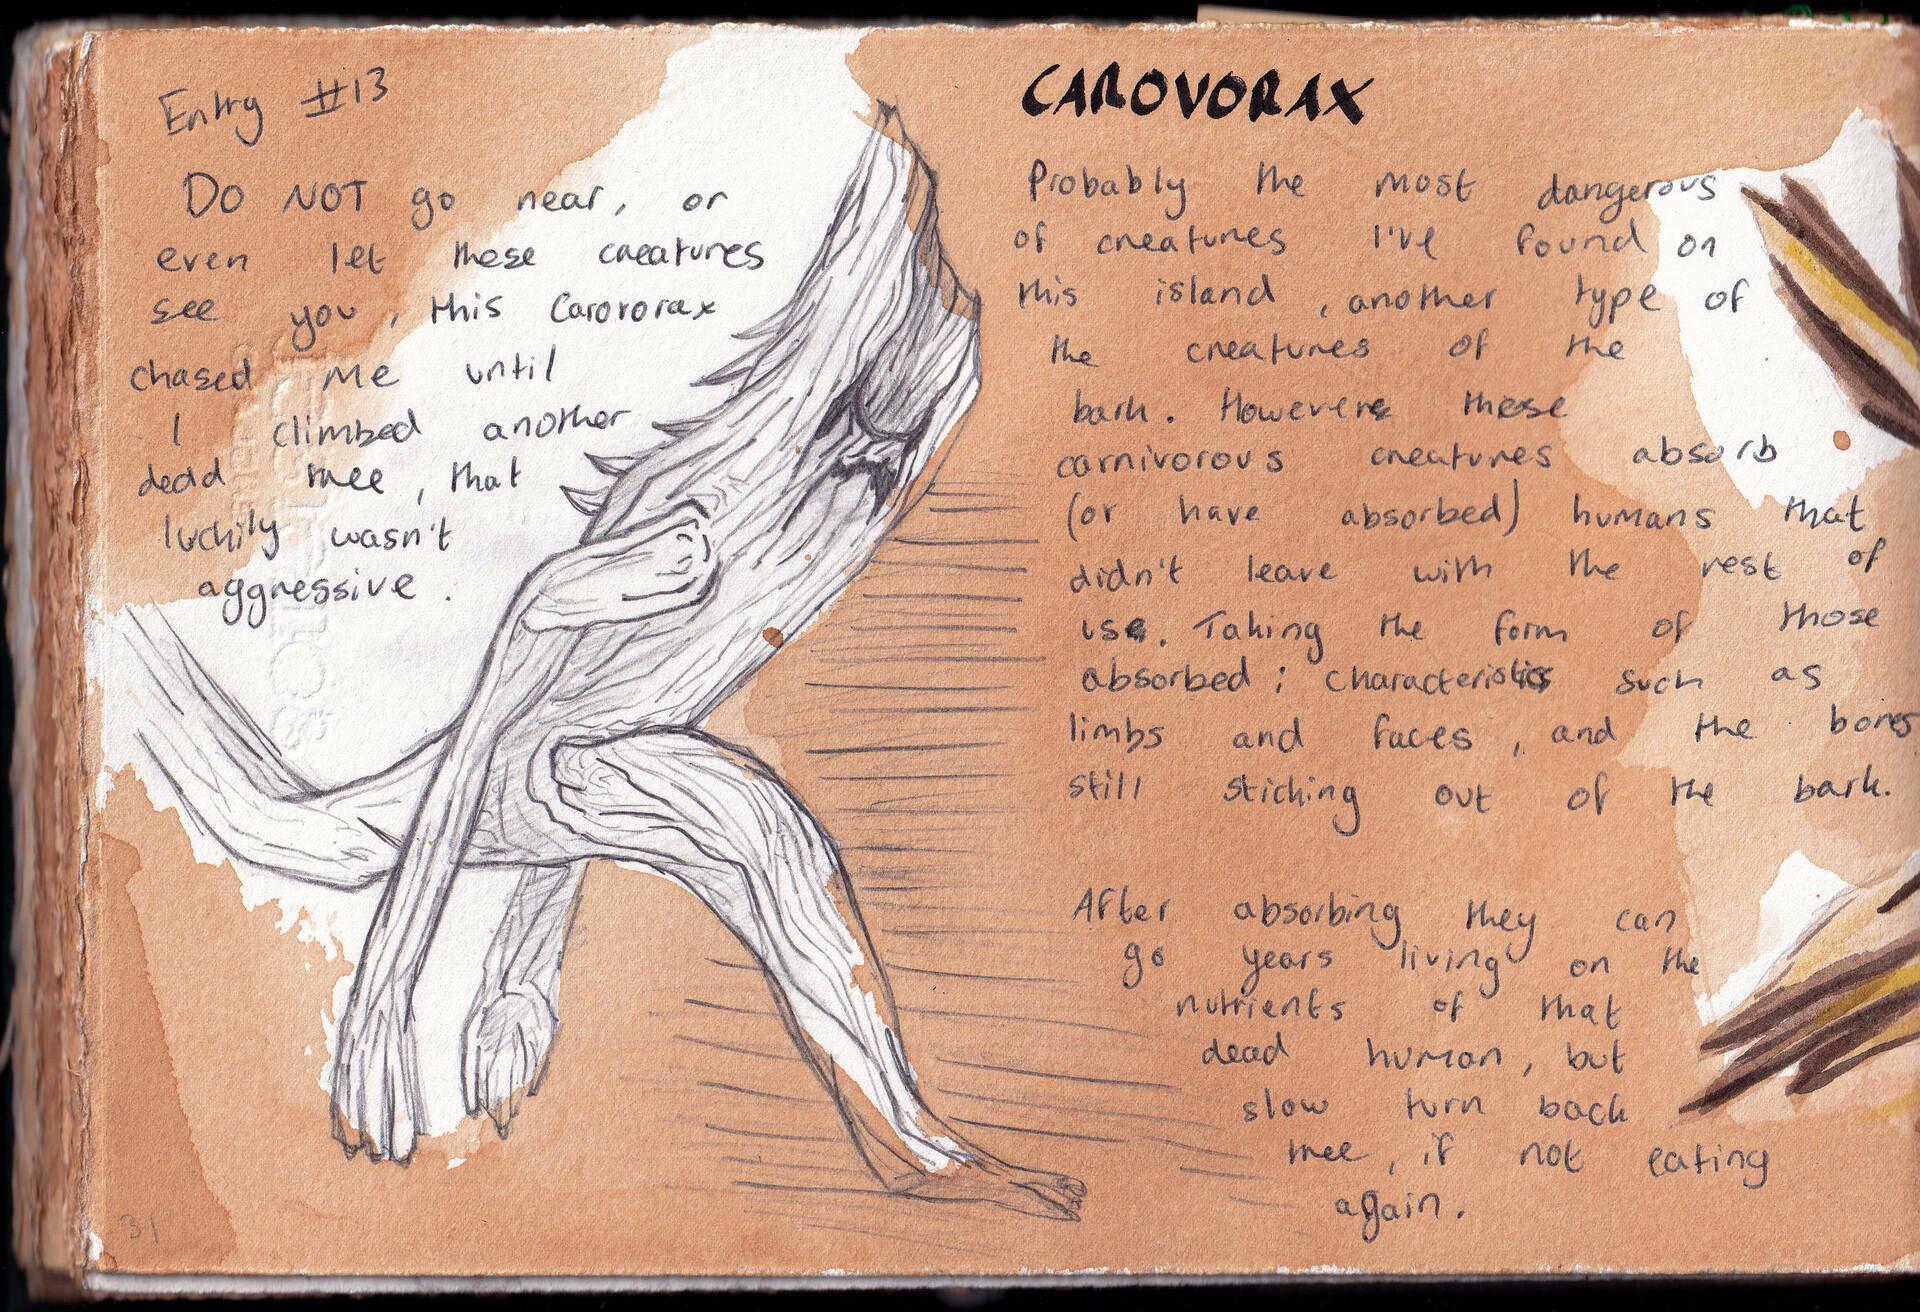 Entry #13
DO NOT go near, or
even let these creatures
see you, this Carovorax
chased me until
I climbed another
dead tree, that
luckily wasn't
aggressive.
31
CAROVORAX
Probably the most dangerous
of creatures I've found on
this island, another type of
the creatures of the
bark. However these
carnivorous creatures absorb
(or have absorbed) humans that
didn't leave with the rest of
us. Taking the form of those
absorbed; characteristics such as
limbs and faces, and the bones
still sticking out of the bark.
After absorbing they can
go years living on the
nutrients of that
dead human, but
slow turn back
tree, if not eating
again.